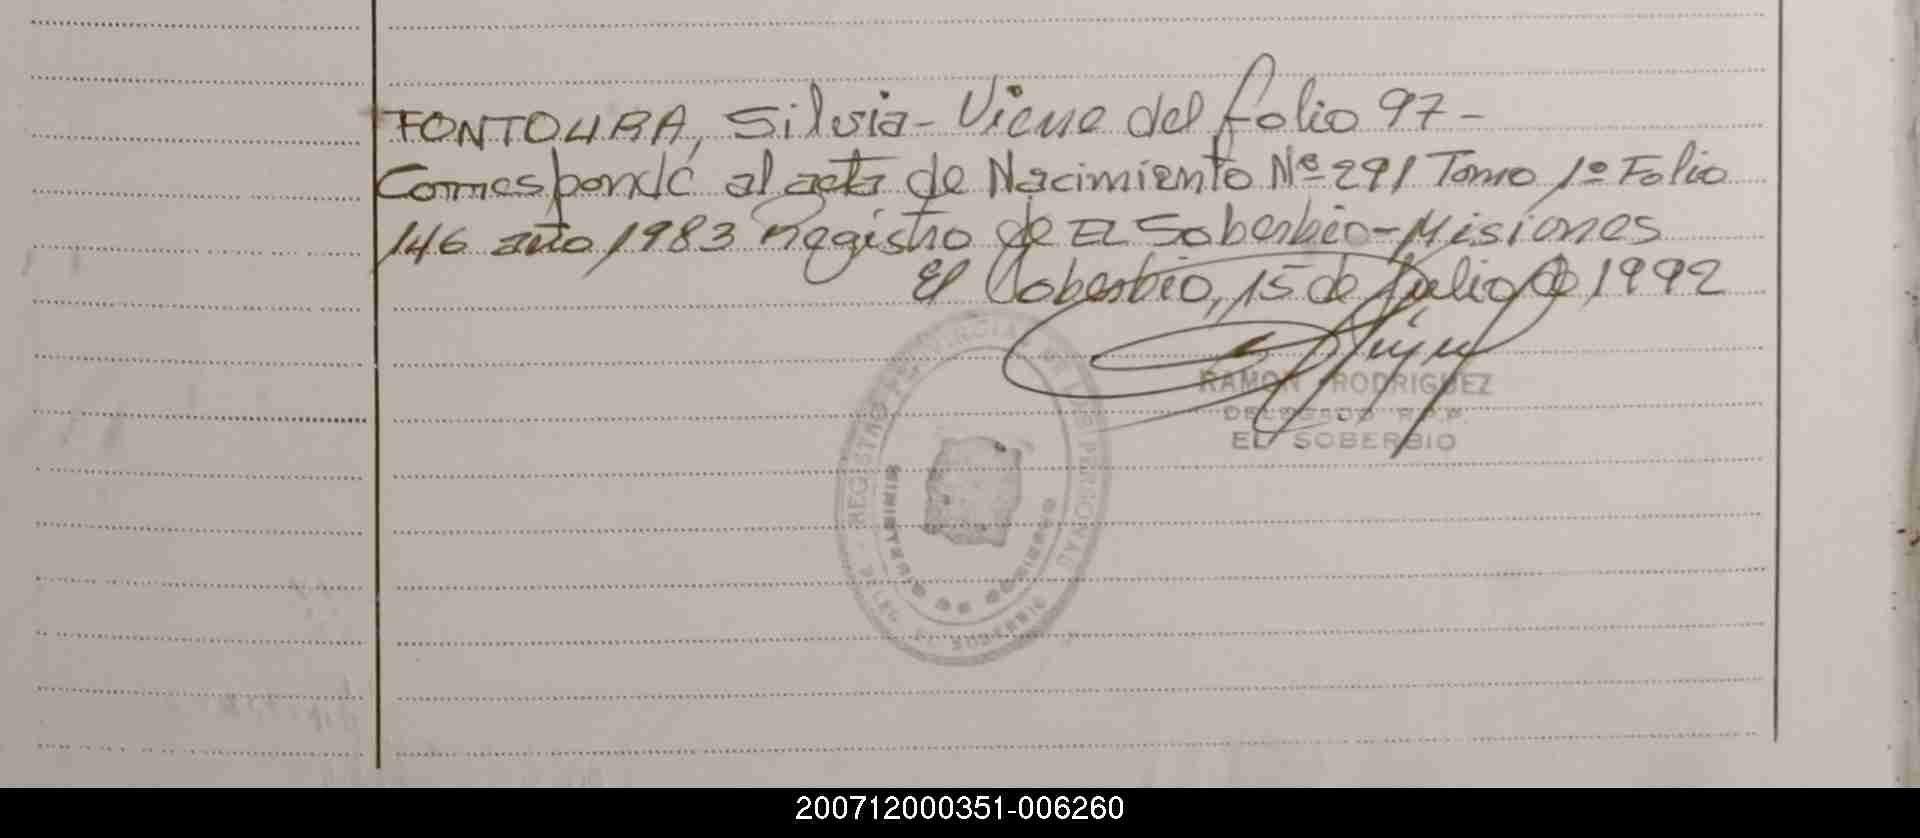 FONTOURA, Silvia - Viene del folio 97 -
Corresponde al acta de Nacimiento Nº 291 Tomo 1º Folio
146 año 1983 Registro de El Soberbio - Misiones
El Soberbio, 15 de Julio de 1992
RAMON RODRIGUEZ
DELEGADO R.P.P.
EL SOBERBIO
REGISTRO PROVINCIAL DE LAS PERSONAS
MINISTERIO DE GOBIERNO
200712000351-006260